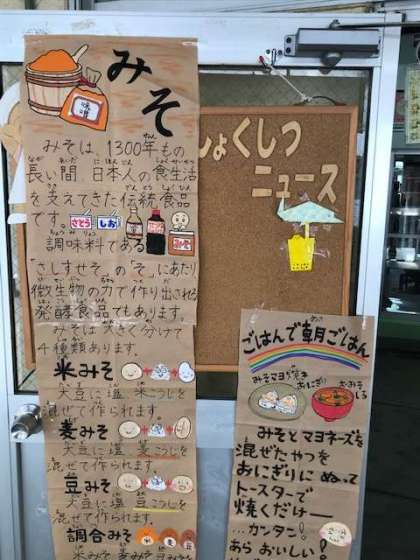 みそ
味噌
みそは、1300年もの
長い間、日本人の食生活
を支えてきた伝統食品
です。
さとう
しお
みそ
調味料である
"さしすせそ"の"そ"にあたり
微生物の力で作り出される
発酵食品でもあります。
みそは大きく分けて
4種類あります。
米みそ
大豆に塩、米こうじを
混ぜて作られます。
麦みそ
大豆に塩、麦こうじを
混ぜて作られます。
豆みそ
大豆に塩、豆こうじを
混ぜて作られます。
調合みそ
米みそ、麦みそ
しょくしつ
ニュース
ごはんで朝ごはん
みそマヨ焼き
おにぎり
おみそ
しる
みそとマヨネーズを
混ぜたやつを
おにぎりに ぬって
トースターで
焼くだけ―
...カンタン!
あら おいしい